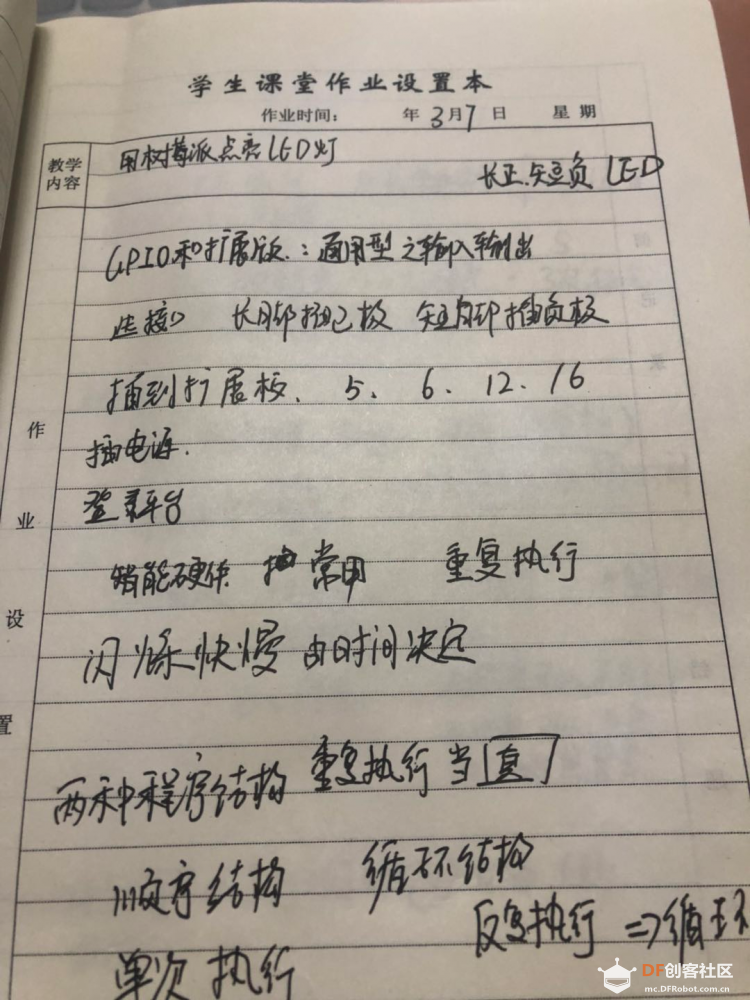 学生课堂作业设置本
作业时间： 年 3月7日 星期
教学内容
用树莓派点亮LED灯
长正.短负 LED
GPIO和扩展版.：通用型之输入输出
连接 长脚插正极 短脚插负极
插到扩展板、 5、 6、 12、 16
插电源.
登录平台
智能硬件 常用 重复执行
闪烁快慢 由时间决定
两种程序结构 重复执行 当 真
顺序结构 循环结构
反复执行 => 循环
单次 执行
作业设置
DF创客社区
mc.DFRobot.com.cn